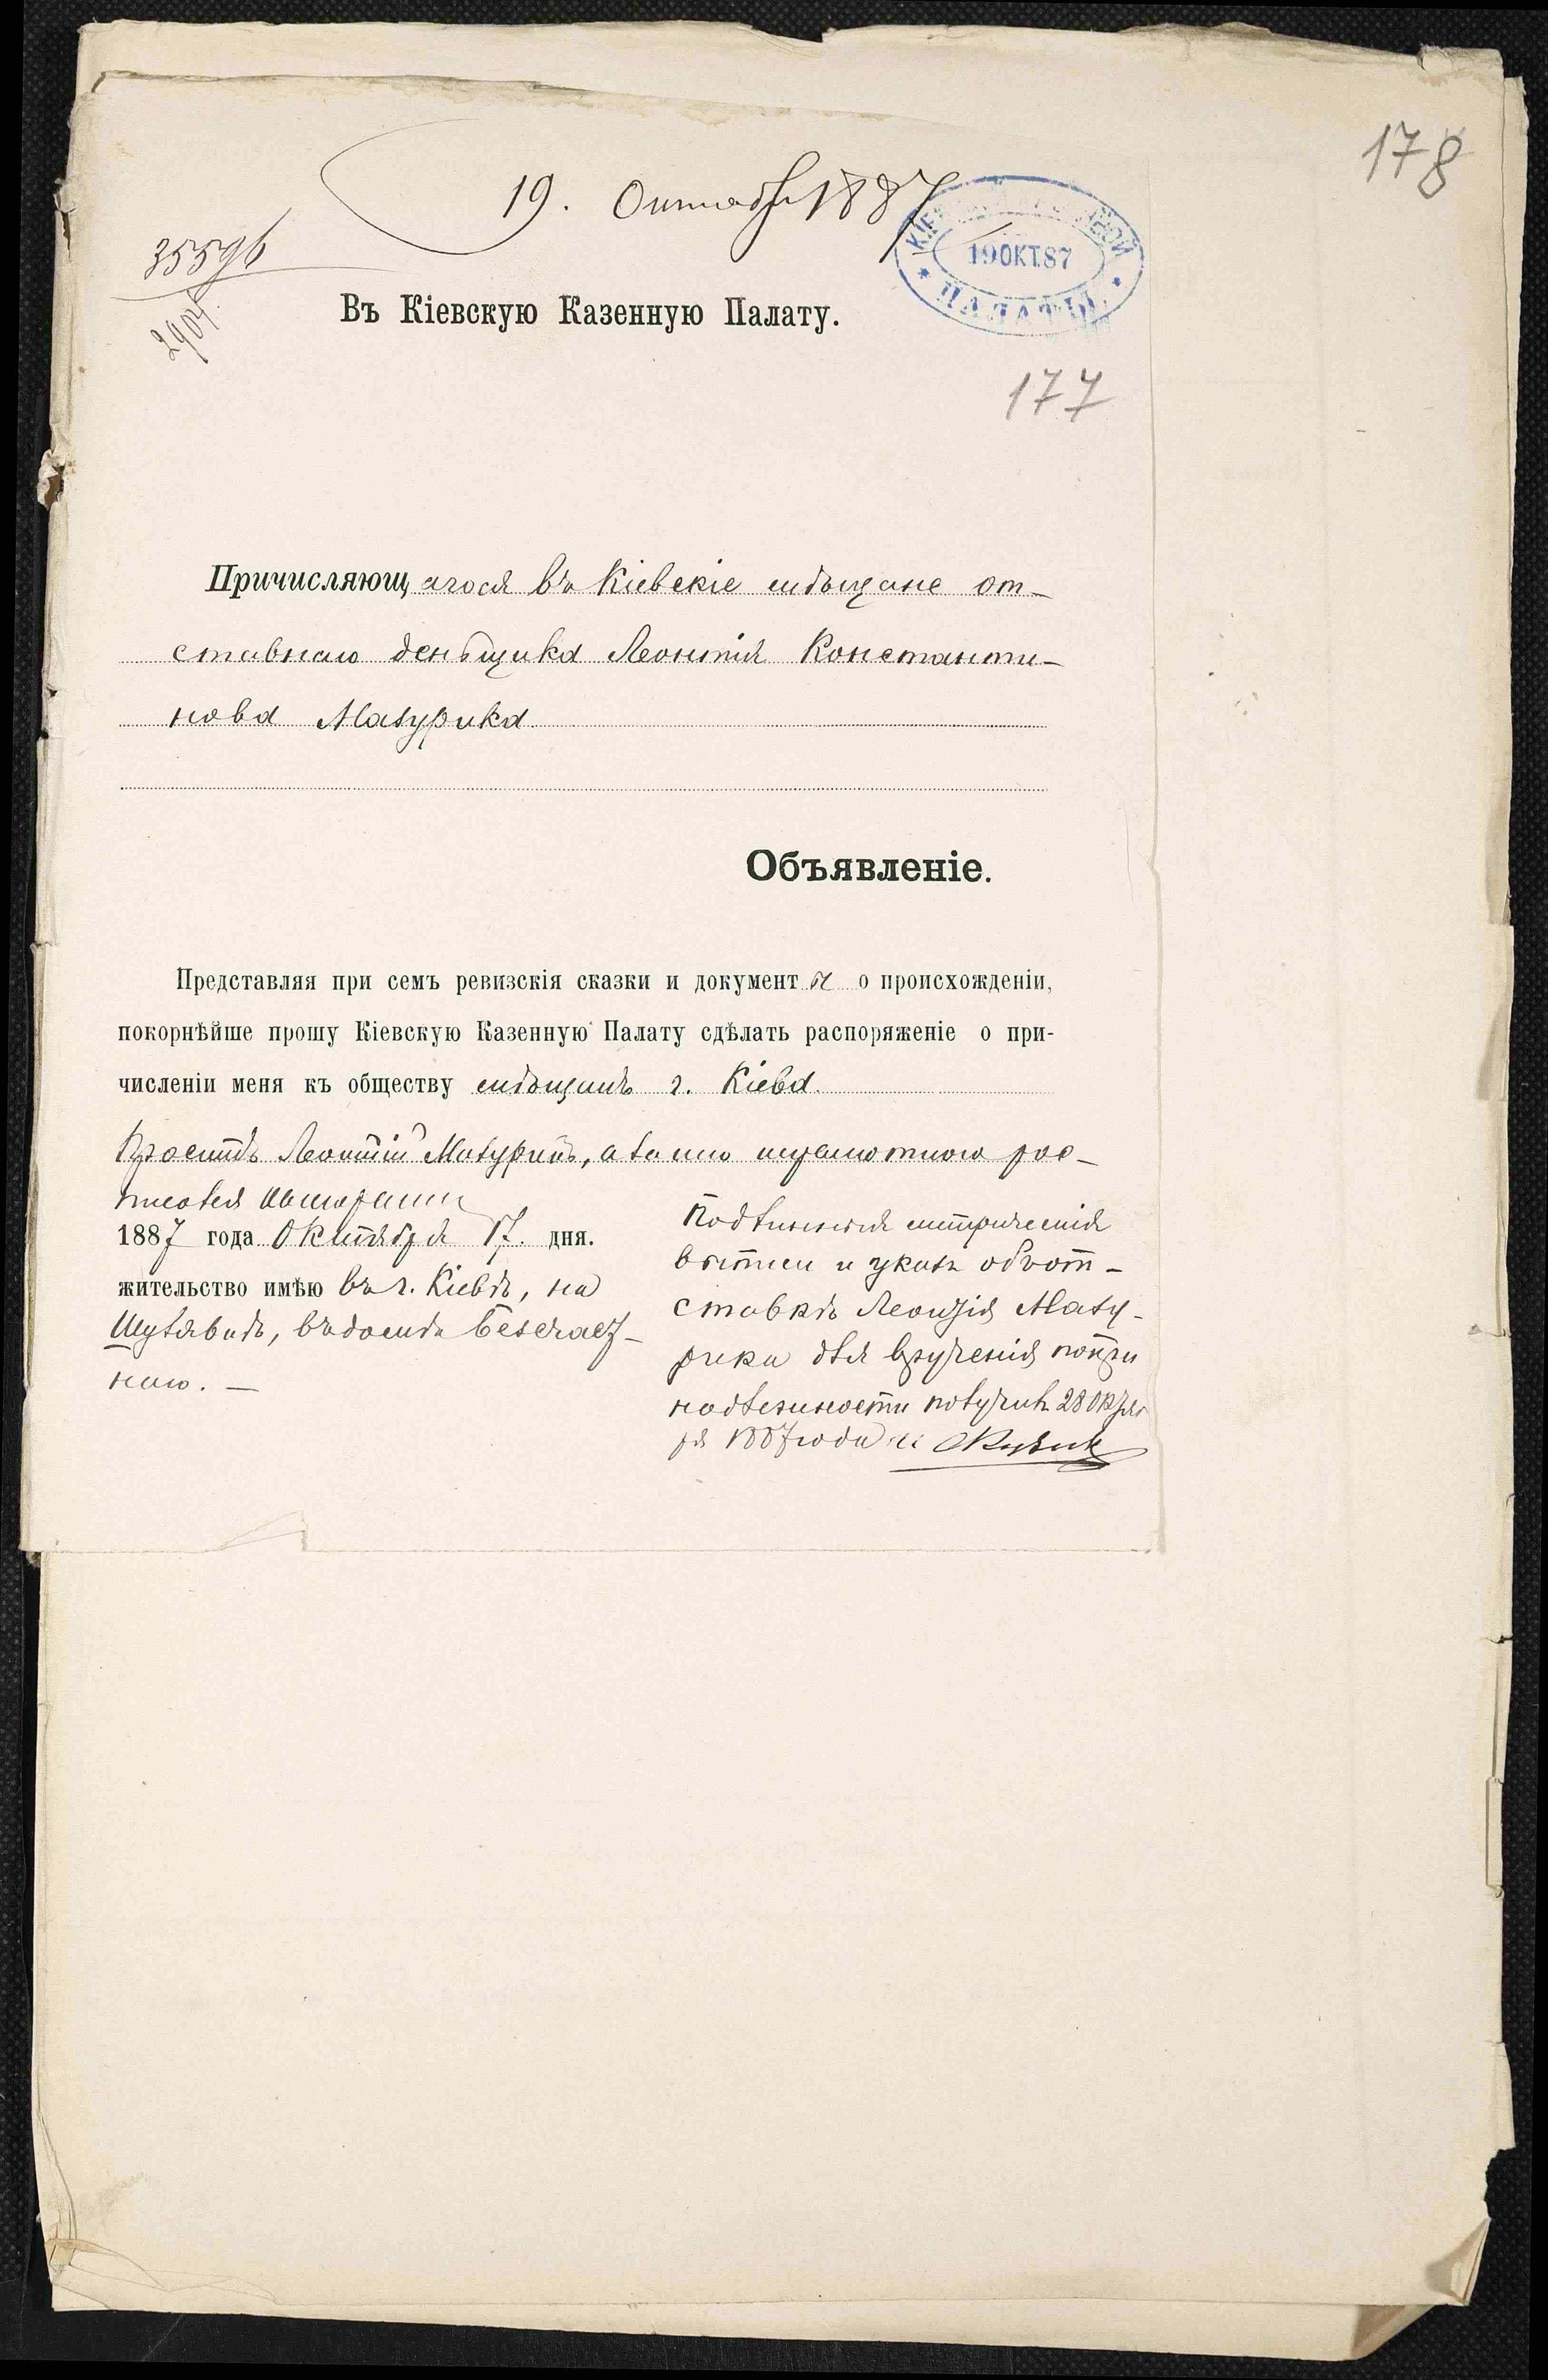 178
19. Октября 1887
КІЕВСКОЙ КАЗЕННОЙ
19 ОКТ. 87
ПАЛАТЫ
35596
2904
Въ Кіевскую Казенную Палату.
177
Причисляющагося въ Кіевскіе мѣщане от-
ставнаго деньщика Леонтія Константи-
нова Мазурика
Объявленіе.
Представляя при семъ ревизскія сказки и документы о происхожденіи,
покорнѣйше прошу Кіевскую Казенную Палату сдѣлать распоряженіе о при-
численіи меня къ обществу мѣщанъ г. Кіева.
Проситъ Леонтій Мазурикъ, а за него неграмотнаго рос-
писался
1887 года Октября 17. дня.
жительство имѣю въ г. Кіевѣ, на
Шулявкѣ, въ домѣ
наго. —
Подлинныя метрическія
выписи и указъ объ от-
ставкѣ Леонтія Мазу-
рика для врученія по при
надлежности получилъ 28 Октяб
ря 1887 года